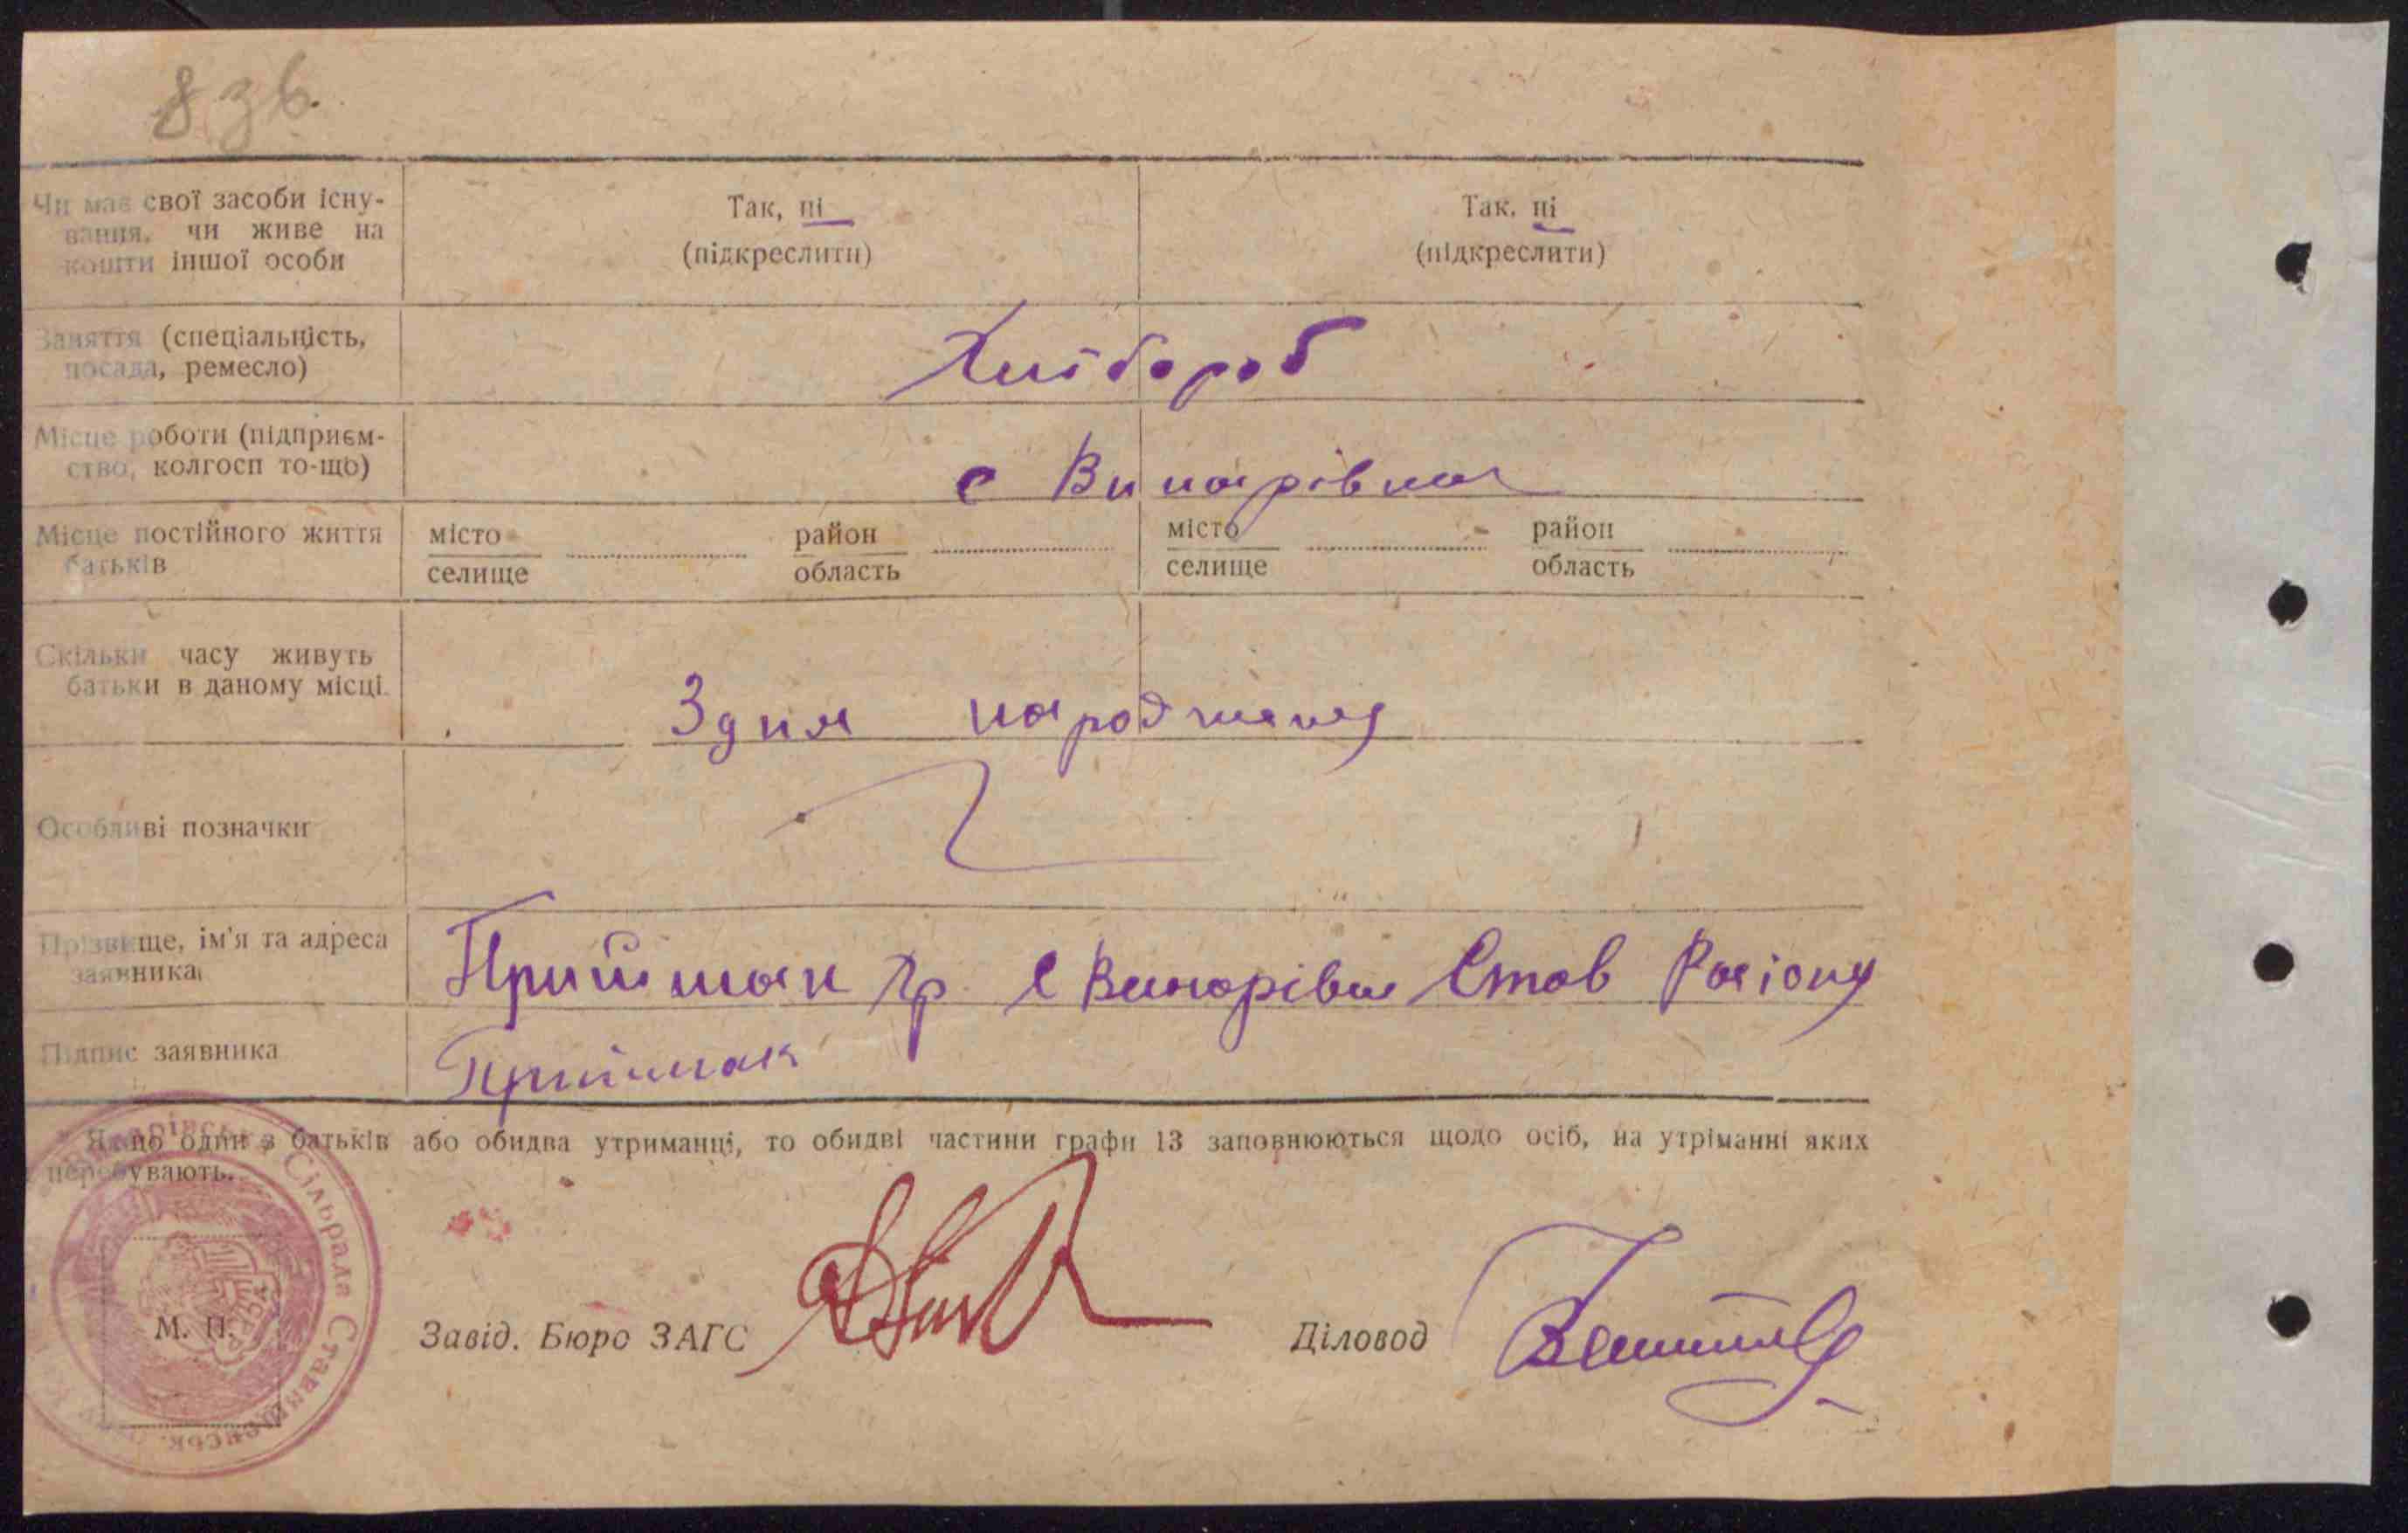 8 зв.
Чи має свої засоби існу-
вання, чи живе на
кошти іншої особи
Так, ні
(підкреслити)
Так, ні
(підкреслити)
Заняття (спеціальність,
посада, ремесло)
Хлібороб
Місце роботи (підприєм-
ство, колгосп то-що)
с Винарівка
Місце постійного життя
батьків
місто
селище
район
область
місто
селище
район
область
Скільки часу живуть
батьки в даному місці.
З дня народження
Особливі позначки
Прізвище, ім'я та адреса
заявника
Приймак Гр. с Винарівка Став Району
Підпис заявника
Приймак
Якщо один з батьків або обидва утриманці, то обидві частини графи 13 заповнюються щодо осіб, на утріманні яких
перебувають.
Сільрада Ставищенськ.
М. П.
Завід. Бюро ЗАГС
Діловод